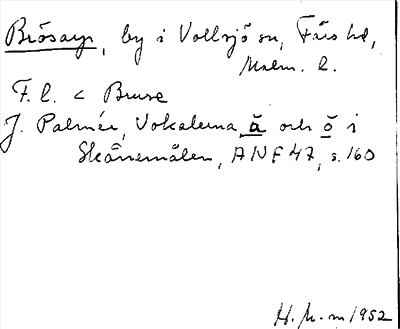 Brösarp, by i Vollsjö sn, Färs hd,
Malm. l.
F. l. < Bruse
J. Palmér, Vokalerna ă och ŏ i
Skånemålen, ANF 47, s. 160
1952